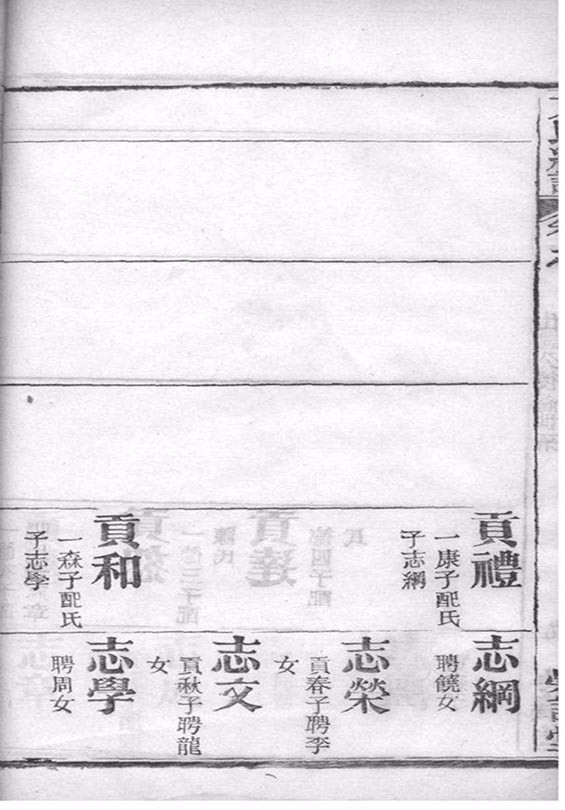 貢禮
一康子配氏
子志綱
貢和
一森子配氏
子志學
志綱
聘饒女
志榮
貢春子聘李
女
志文
貢秋子聘龍
女
志學
聘周女